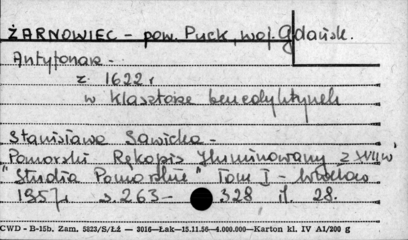 ŻARNOWIEC - pow. Puck, woj. Gdańsk.
Antyfonarz -
z 1622 r
w klasztorze benedyktynek
Stanisława Sawicka -
Pomorski Rękopis Iluminowany z XVII w
"Studia Pomorskie" Tom I - Wrocław
1957 r s. 263 - 328 il. 28.
CWD - B-15b. Zam. 5823/S/ŁŻ — 3016—Łak—15.11.56—4.000.000—Karton kl. IV A1/200 g